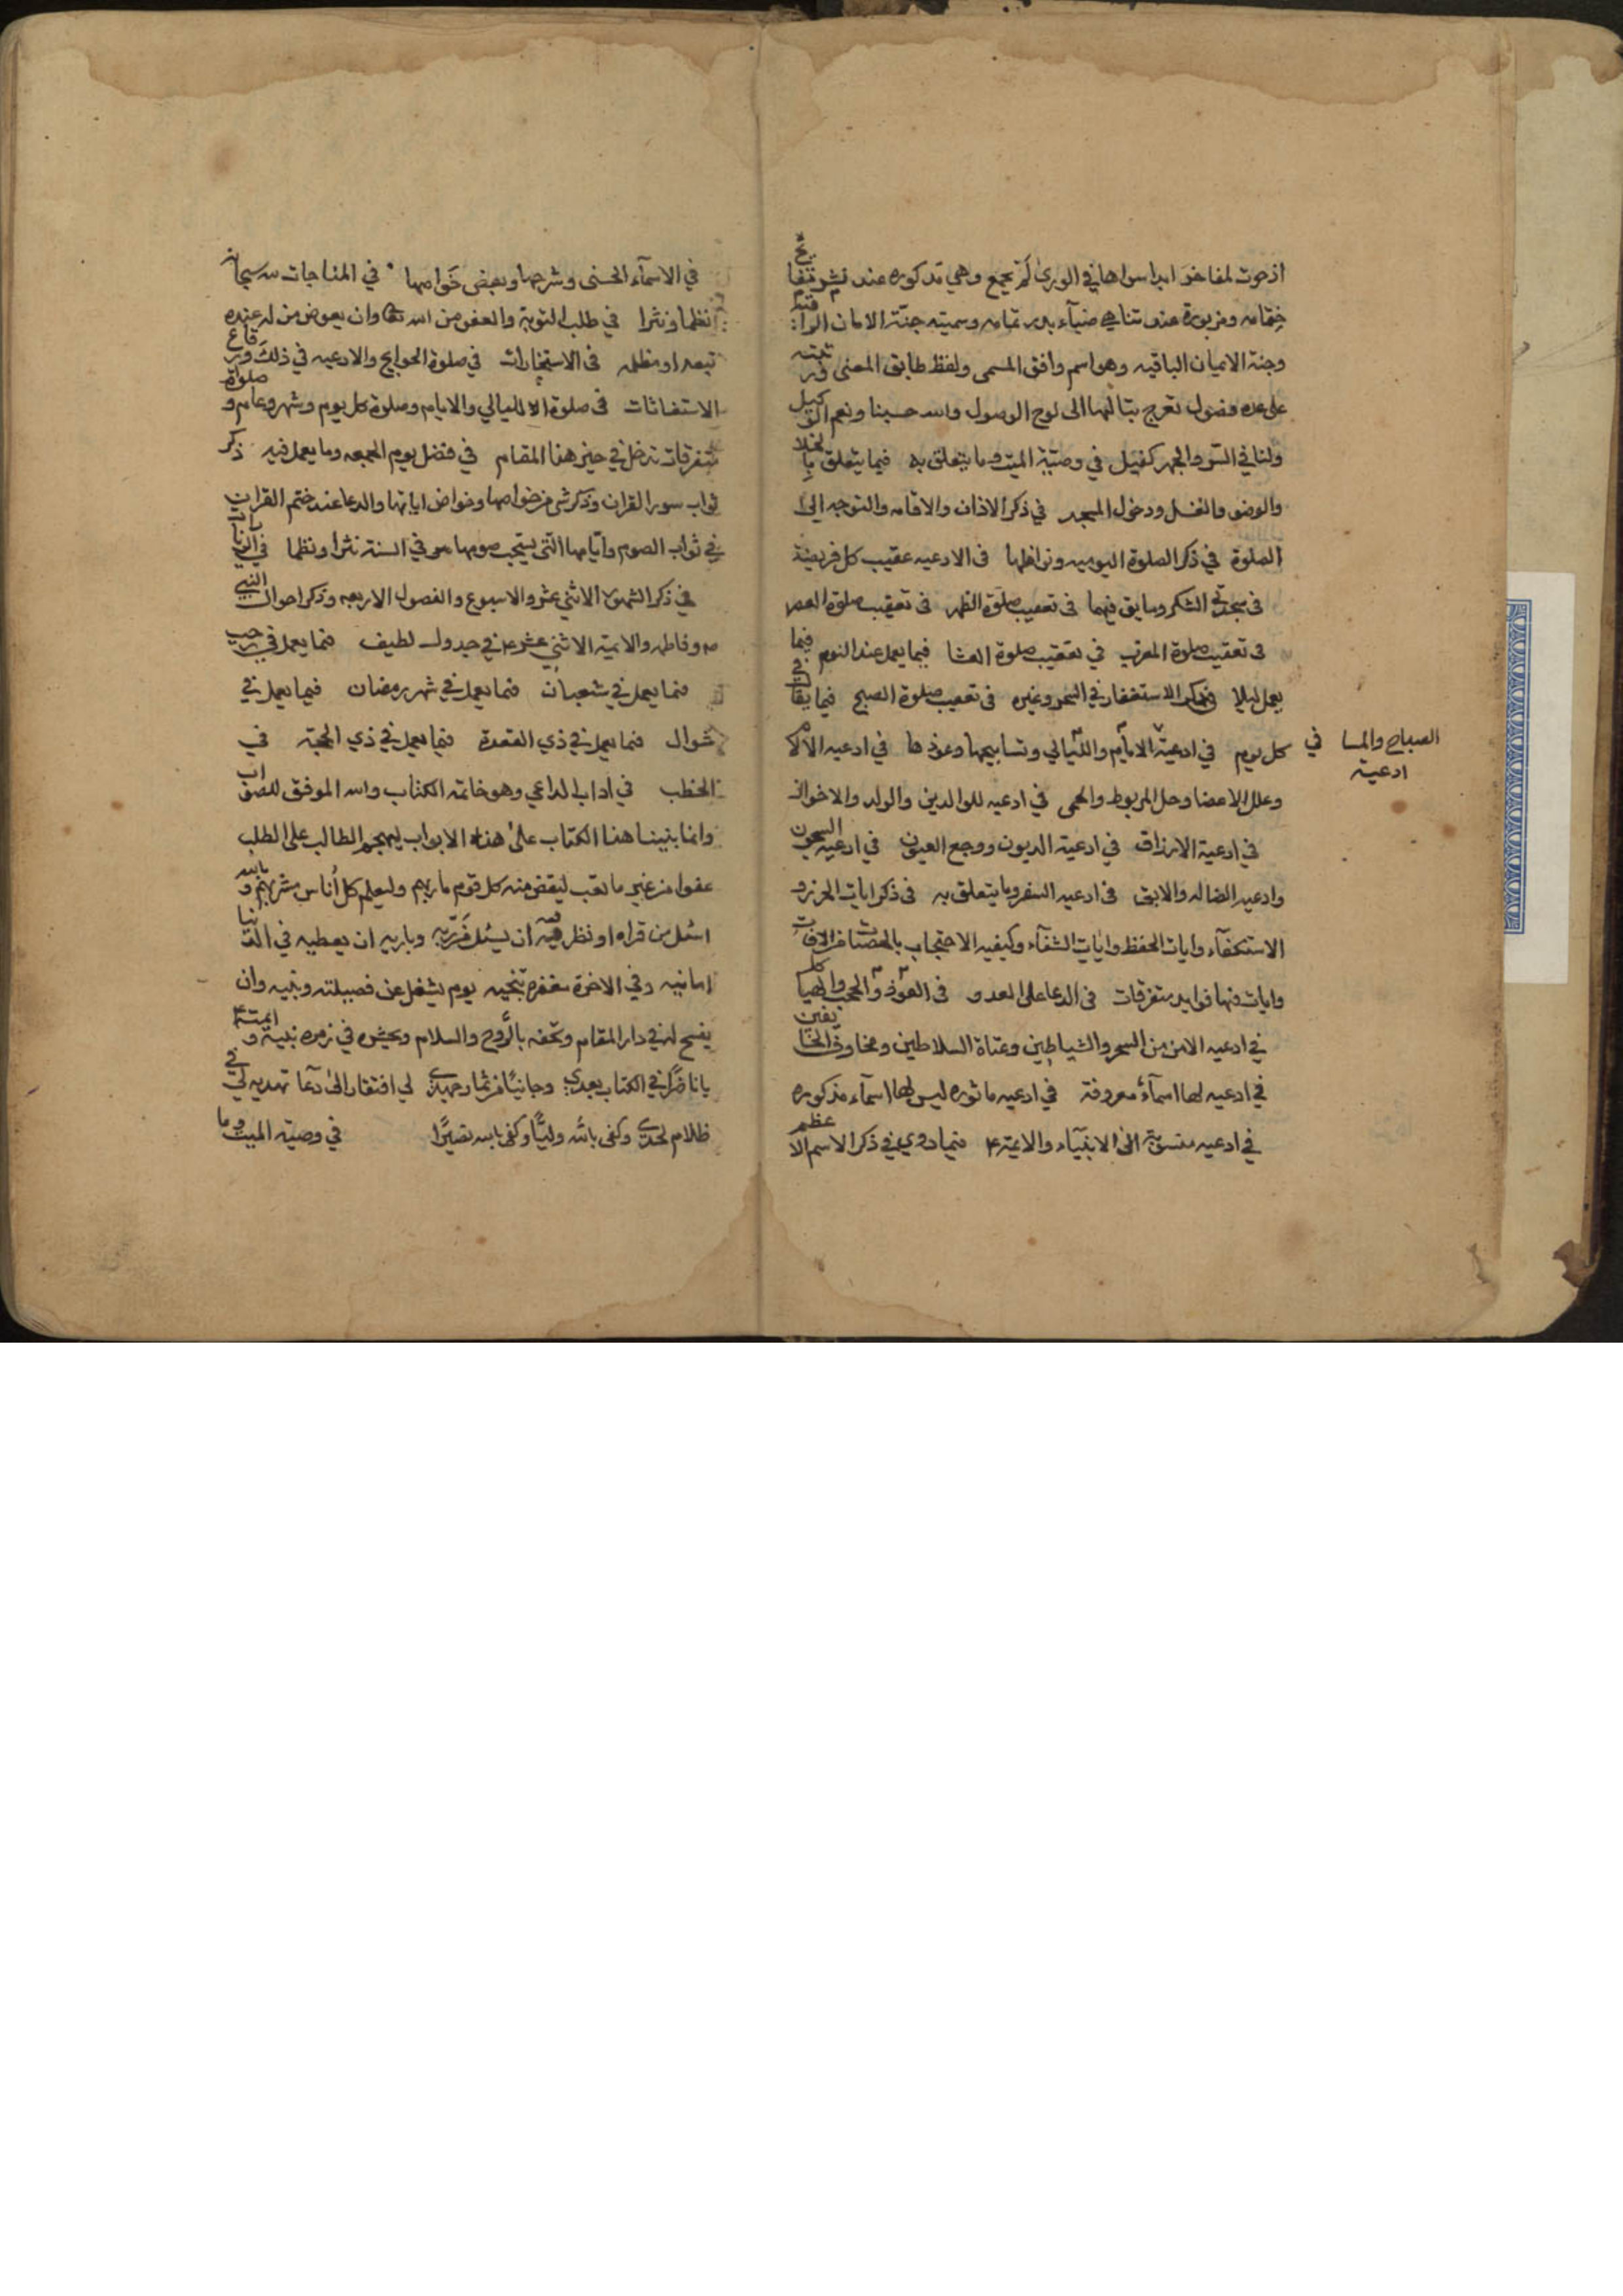 اذ حوت لمفاخر ابدا سواها في الورى لم تجمع وهي مذكوره عند
ختامه ومزبورة عند تناهي ضياء بدر تمامه وسميته جنة الامان الواقية
وجنة الايمان الباقيه وهو اسم وافق المسمى ولفظ طابق المعنى
على عده فصول تعرج بتاليها الى لوح الوصول والله حسبنا ونعم الوكيل
ولنا في السر والجهر كفيل في وصية الميت وما يتعلق به فيما يتعلق بالخلا
والوضو والغسل ودخول المسجد في ذكر الاذان والاقامه والتوجه الى
الصلوة في ذكر الصلوة اليوميه ونوافلها فى الادعيه عقيب كل فريضة
فى سجدتي الشكر وما يق فيهما فى تعقيب صلوة الظهر فى تعقيب صلوة العصر
فى تعقيب صلوة المغرب في تعقيب صلوة العشا فيما يعمل عند النوم فيما
يعمل ليلا في ذكر الاستغفار في السحر وغيره فى تعقيب صلوة الصبح فيما يقال في
الصباح والمسا في ادعية
كل يوم في ادعية الايام والليالي وتسابيحها وعوذها في ادعيه الالام
وعلل الاعضا وحل المربوط والحمى في ادعيه للوالدين والولد والاخوان
في ادعية الارزاق في ادعية الديون ووجع العيون في ادعيه السجون
وادعيه الضاله والابق فى ادعيه السفر وما يتعلق به فى ذكر ايات الحرز و
الاستكفآء وايات الحفظ وايات الشفآء وكيفيه الاحتجاب بالحصيات من الافات
وايات فيها فوايد متفرقات فى الدعا على العدو فى العوذ والحجب والهياكل
في ادعيه الامن من السحر والشياطين وعتاة السلاطين ومخاوف الخائفين
في ادعيه لها اسمآء معروفة في ادعيه ماثوره ليس لها اسمآء مذكوره
في ادعيه منسوبة الى الانبيآء والايمة فيما روي في ذكر الاسم الاعظم
في الاسمآء الحسنى وشرحها وبعض خواصها في المناجات لله سبحانه
نظما ونثرا في طلب التوبة والعفو من الله وان يعوض من له عنده
تبعه او مظلمه فى الاستخارات في صلوة الحوايج والادعيه في ذلك ورقاع
الاستغاثات فى صلوة الليالي والايام وصلوة كل يوم وشهر وعام وصلوة
متفرقات تدخل في حيز هذا المقام في فضل يوم الجمعه وما يعمل فيه ذكر
ثواب سور القران وذكر شي من خواصها وخواص اياتها والدعا عند ختم القران
في ثواب الصوم وايامها التي يستحب صومها في السنة نثرا ونظما في الزيارات
في ذكر الشهور الاثني عشر والاسبوع والفصول الاربعه وذكر احوال النبي
وفاطمه والايمة الاثني عشر في جدول لطيف فيما يعمل في رجب
فيما يعمل في شعبان فيما يعمل في شهر رمضان فيما يعمل في
شوال فيما يعمل في ذي القعدة فيما يعمل في ذي الحجة في
الخطب في اداب الداعي وهو خاتمة الكتاب والله الموفق للصواب
وانما بنينا هذا الكتاب على هذه الابواب ليهجم الطالب على الطلب
عفوا من غير ما تعب ليقض منه كل قوم ماربهم وليعلم كل أناس مشربهم وبالله
اسئل من قراه او نظر فيه ان يسئل من ربه وباريه ان يعطيه في الدنيا
امانيه وفي الاخرة مغفرة تنجيه يوم يشغل عن فصيلته وبنيه وان
يفسح له في دار المقام وتحفه بالروح والسلام ويحشره في زمره نبيه وايمته
يا ناظرا في الكتاب بعدي وجانيا من ثمار جهدي لي افتقار الى دعا تهديه لي في
ظلام لحدي وكفى بالله وليا وكفى بالله نصيرا في وصية الميت وما